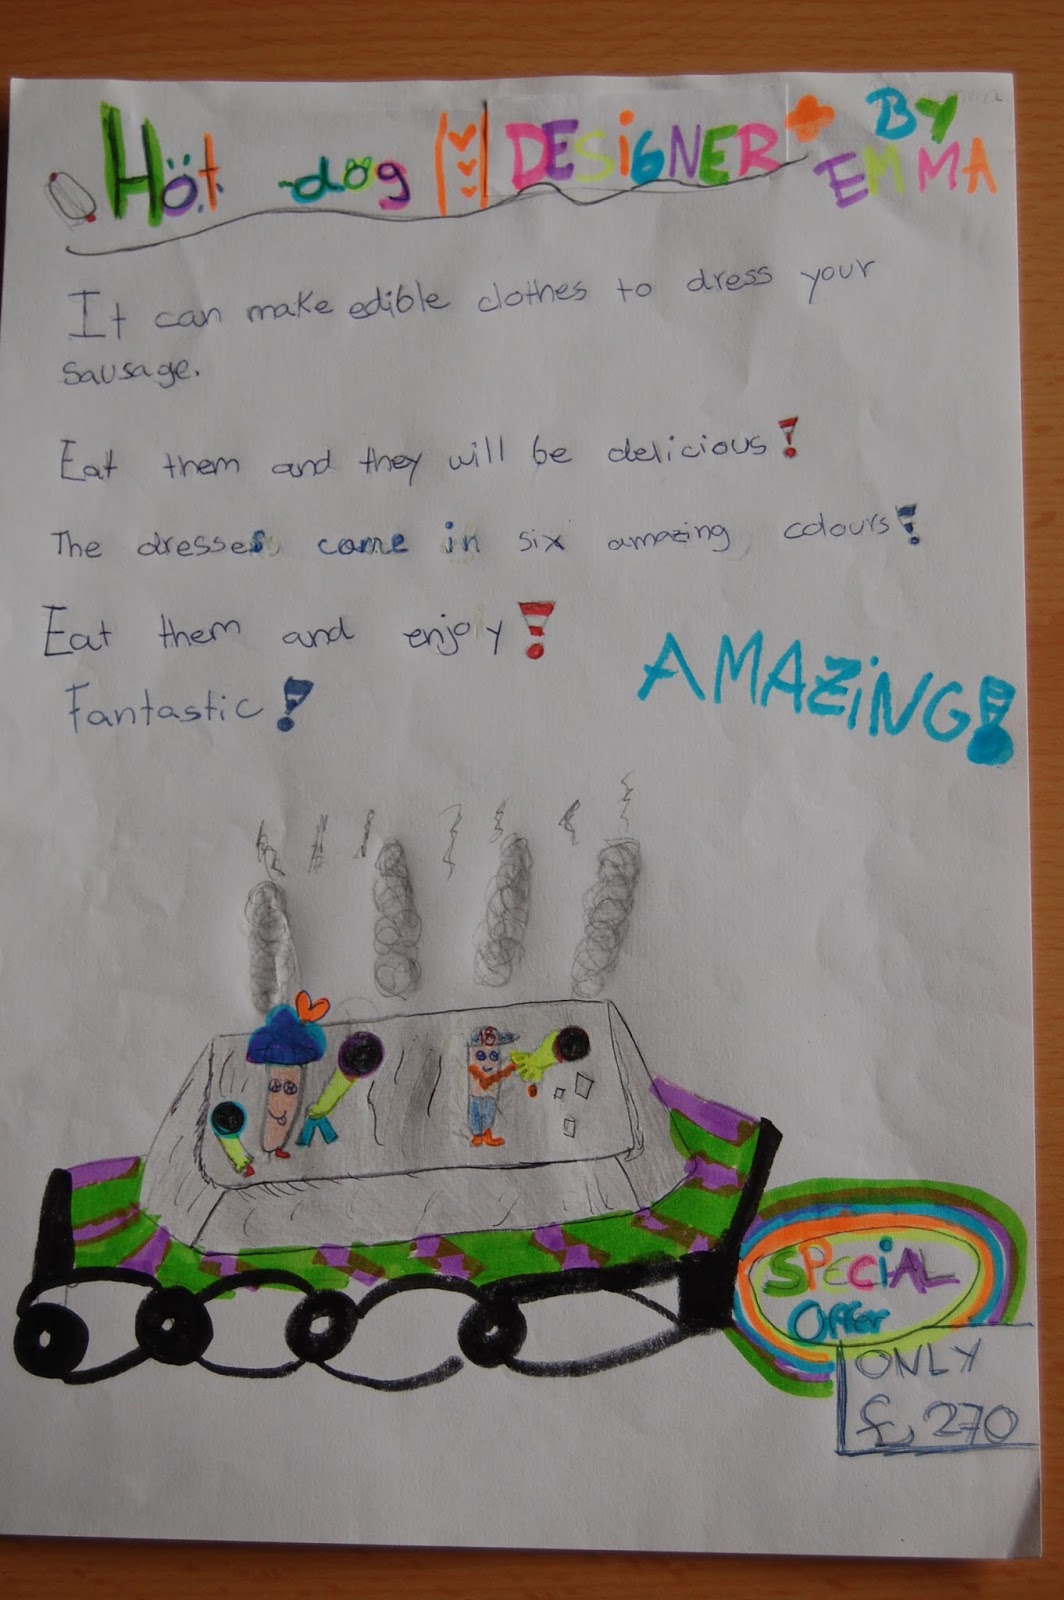 Höt dög DESIGNER BY
EMMA
It can make edible clothes to dress your
sausage.
Eat them and they will be delicious!
The dresses come in six amazing colours!
Eat them and enjoy!
Fantastic!
AMAZiNG!
SPECiAL
Offer
ONLY
£270